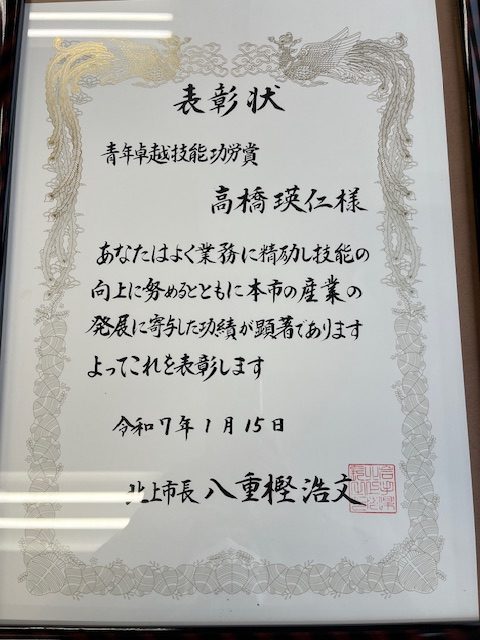 表彰状
青年卓越技能功労賞
高橋瑛仁様
あなたはよく業務に精励し技能の
向上に努めるとともに本市の産業の
発展に寄与した功績が顕著であります
よってこれを表彰します
令和7年1月15日
北上市長 八重樫浩文